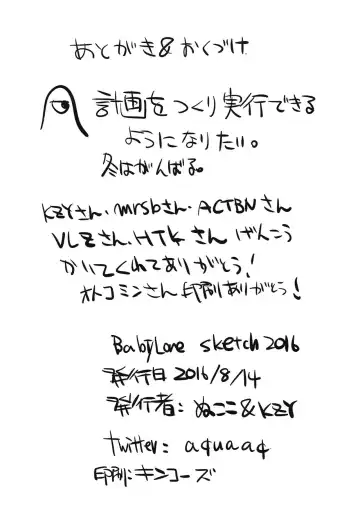 あとがき&おくづけ
計画をつくり実行できる
ようになりたい。
冬はがんばる。
KZYさん、mrsbさん、ACTBNさん
VLZさん、HTKさん げんこう
かいてくれてありがとう!
オトコミンさん印刷ありがとう!
BabyLone sketch 2016
発行日 2016/8/14
発行者: ぬここ&KZY
twitter: aquaaq
印刷:キンコーズ